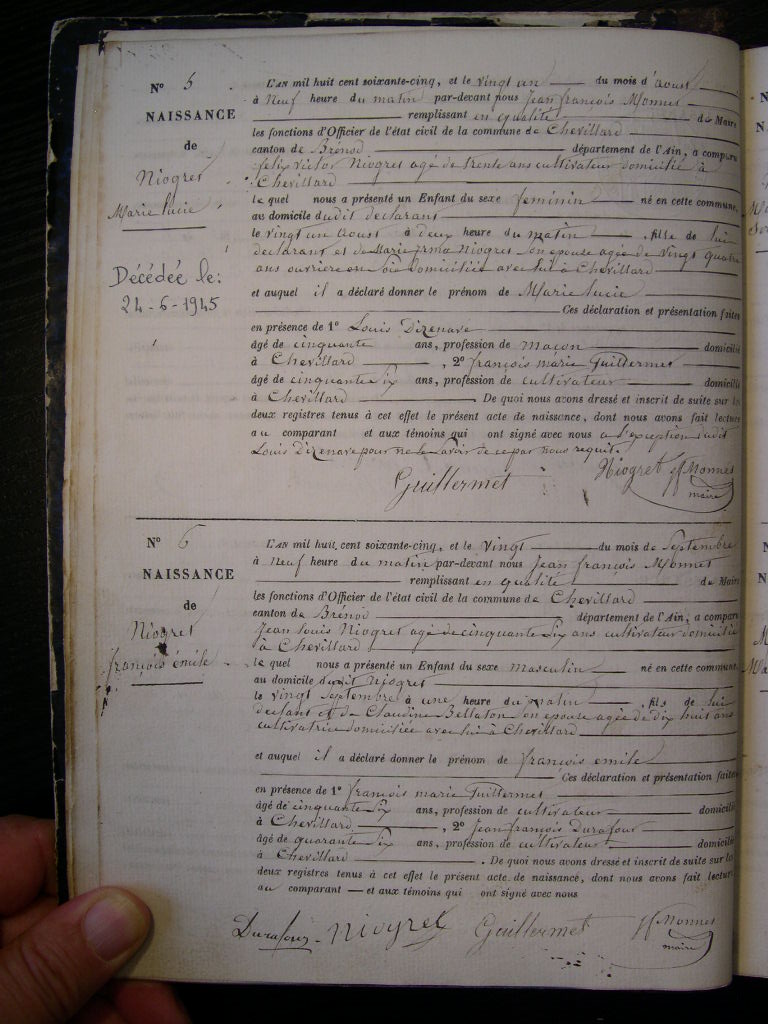 N° 5
NAISSANCE
de
Niogret
Marie Lucie
Décédée le:
24-6-1945
L'AN mil huit cent soixante-cinq, et le vingt un du mois d'aoust
à Neuf heure du matin par-devant nous Jean françois Monnet
remplissant en qualité de Maire
les fonctions d'Officier de l'état civil de la commune de Chevillard
canton de Brénod département de l'Ain, a comparu
felix victor Niogret agé de trente ans cultivateur domicilié à
Chevillard
le quel nous a présenté un Enfant du sexe feminin né en cette commune,
au domicile dudit declarant
le vingt un aoust à deux heure du matin, fille de lui
declarant et de Marie irma Niogret son epouse agée de vingt quatre
ans ouvriere en soie domiciliée avec lui à Chevillard
et auquel il a déclaré donner le prénom de Marie lucie
Ces déclaration et présentation faites
en présence de 1° Louis Dizenave
âgé de cinquante ans, profession de maçon domicilié
à Chevillard, 2° françois marie Guillermet
âgé de cinquante six ans, profession de cultivateur domicilié
à Chevillard. De quoi nous avons dressé et inscrit de suite sur les
deux registres tenus à cet effet le présent acte de naissance, dont nous avons fait lecture
au comparant et aux témoins qui ont signé avec nous a l'exception dudit
Louis Dizenave pour ne le savoir de ce par nous requit.
Guillermet Niogret Jf Monnet
maire
N° 6
NAISSANCE
de
Niogret
françois émile
L'AN mil huit cent soixante-cinq, et le vingt du mois de Septembre
à Neuf heure du matin par-devant nous Jean françois Monnet
remplissant en qualité de Maire
les fonctions d'Officier de l'état civil de la commune de Chevillard
canton de Brénod département de l'Ain, a comparu
Jean louis Niogret agé de cinquante six ans cultivateur domicilié
à Chevillard
le quel nous a présenté un Enfant du sexe masculin né en cette commune
au domicile dudit Niogret
le vingt septembre à une heure du matin, fils de lui
declant et de Claudine Bellaton son epouse agée de dix huit ans
cultivatrice domiciliée avec lui à Chevillard
et auquel il a déclaré donner le prénom de françois emile
Ces déclaration et présentation faites
en présence de 1° françois marie Guillermet
âgé de cinquante six ans, profession de cultivateur domicilié
à Chevillard, 2° Jean françois Durafour
âgé de quarante six ans, profession de cultivateur domicilié
à Chevillard. De quoi nous avons dressé et inscrit de suite sur les
deux registres tenus à cet effet le présent acte de naissance, dont nous avons fait lecture
au comparant et aux témoins qui ont signé avec nous
Durafour Niogret Guillermet Jf Monnet
maire